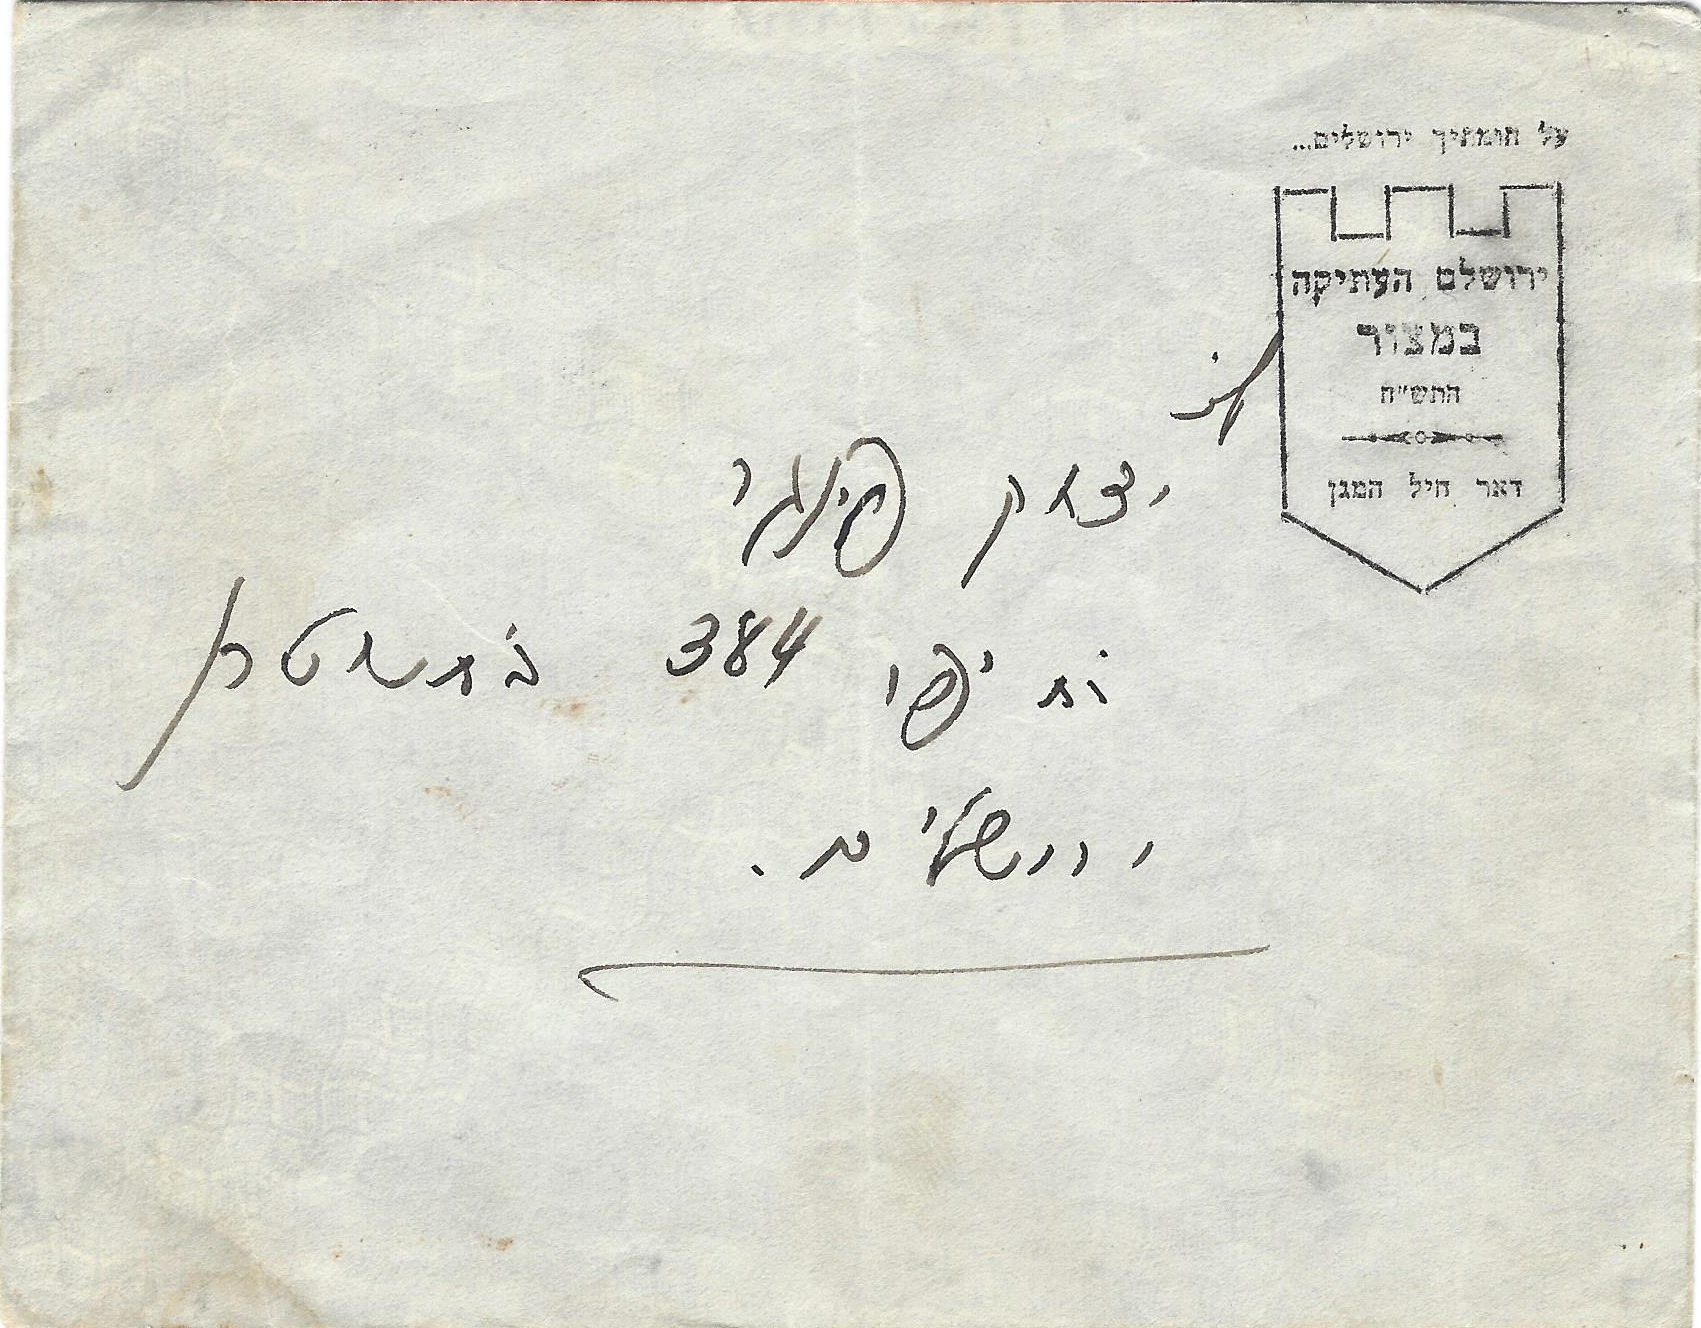 על חומתיך ירושלים...
ירושלם העתיקה
במצור
התש"ח
דאר חיל המגן
יצחק
רח יפו 384
ירושלים.